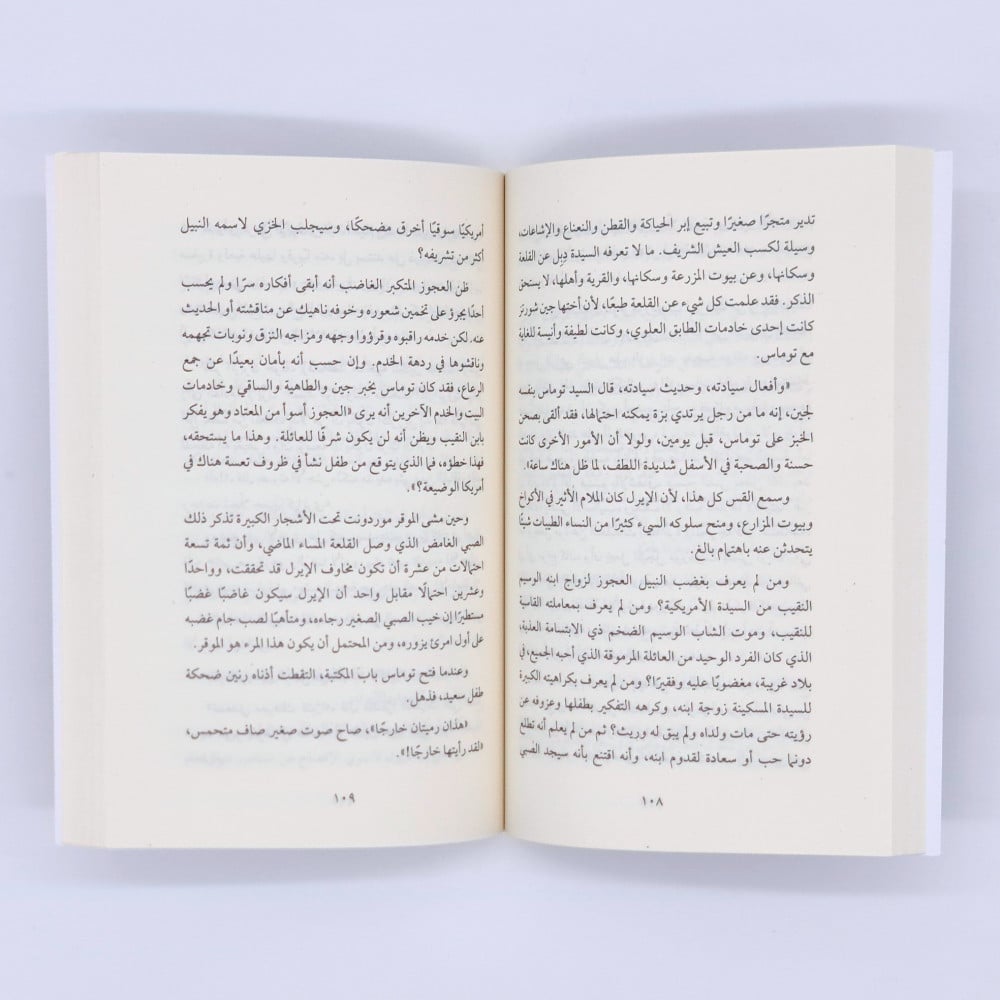 تدير متجرًا صغيرًا وتبيع إبر الحياكة والقطن والنعناع والإشاعات،
وسيلة لكسب العيش الشريف. ما لا تعرفه السيدة دِبِل عن القلعة
وسكانها، وعن بيوت المزرعة وسكانها، والقرية وأهلها، لا يستحق
الذكر. فقد علمت كل شيء عن القلعة طبعًا، لأن أختها جين شورتز
كانت إحدى خادمات الطابق العلوي، وكانت لطيفة وأنيسة للغاية
مع توماس.
«وأفعال سيادته، وحديث سيادته، قال السيد توماس بنفسه
لجين، إنه ما من رجل يرتدي بزة يمكنه احتمالها، فقد ألقى بصحن
الخبز على توماس، قبل يومين، ولولا أن الأمور الأخرى كانت
حسنة والصحبة في الأسفل شديدة اللطف، لما ظل هناك ساعة».
وسمع القس كل هذا، لأن الإيرل كان الملام الأثير في الأكواخ
وبيوت المزارع، ومنح سلوكه السيء كثيرًا من النساء الطيبات شيئًا
يتحدثن عنه باهتمام بالغ.
ومن لم يعرف بغضب النبيل العجوز لزواج ابنه الوسيم
النقيب من السيدة الأمريكية؟ ومن لم يعرف بمعاملته القاسية
للنقيب، وموت الشاب الوسيم الضخم ذي الابتسامة العذبة،
الذي كان الفرد الوحيد من العائلة المرموقة الذي أحبه الجميع، في
بلاد غريبة، مغضوبًا عليه وفقيرًا؟ ومن لم يعرف بكراهيته الكبيرة
للسيدة المسكينة زوجة ابنه، وكرهه التفكير بطفلها وعزوفه عن
رؤيته حتى مات ولداه ولم يبق له وريث؟ ثم من لم يعلم أنه تطلع
دونما حب أو سعادة لقدوم ابنه، وأنه اقتنع بأنه سيجد الصبي
١٠٨
أمريكيًا سوقيًا أخرق مضحكًا، وسيجلب الخزي لاسمه النبيل
أكثر من تشريفه؟
ظن العجوز المتكبر الغاضب أنه أبقى أفكاره سرًا ولم يحسب
أحدًا يجرؤ على تخمين شعوره وخوفه ناهيك عن مناقشته أو الحديث
عنه. لكن خدمه راقبوه وقرؤوا وجهه ومزاجه النزق ونوبات تجهمه
وناقشوها في ردهة الخدم. وإن حسب أنه بأمان بعيدًا عن جمع
الرعاع، فقد كان توماس يخبر جين والطاهية والساقي وخادمات
البيت والخدم الآخرين أنه يرى «العجوز أسوأ من المعتاد وهو يفكر
بابن النقيب ويظن أنه لن يكون شرفًا للعائلة. وهذا ما يستحقه،
فهذا خطؤه، فما الذي يتوقع من طفل نشأ في ظروف تعسة هناك في
أمريكا الوضيعة؟».
وحين مشى الموقر موردونت تحت الأشجار الكبيرة تذكر ذلك
الصبي الغامض الذي وصل القلعة المساء الماضي، وأن ثمة تسعة
احتمالات من عشرة أن تكون مخاوف الإيرل قد تحققت، وواحدًا
وعشرين احتمالًا مقابل واحد أن الإيرل سيكون غاضبًا غضبًا
مستطيرًا إن خيب الصبي الصغير رجاءه، ومتأهبًا لصب جام غضبه
على أول امرئ يزوره، ومن المحتمل أن يكون هذا المرء هو الموقر.
وعندما فتح توماس باب المكتبة، التقطت أذناه رنين ضحكة
طفل سعيد، فذهل.
«هذان رميتان خارجًا»، صاح صوت صغير صاف متحمس،
«لقد رأيتها خارجًا!».
١٠٩